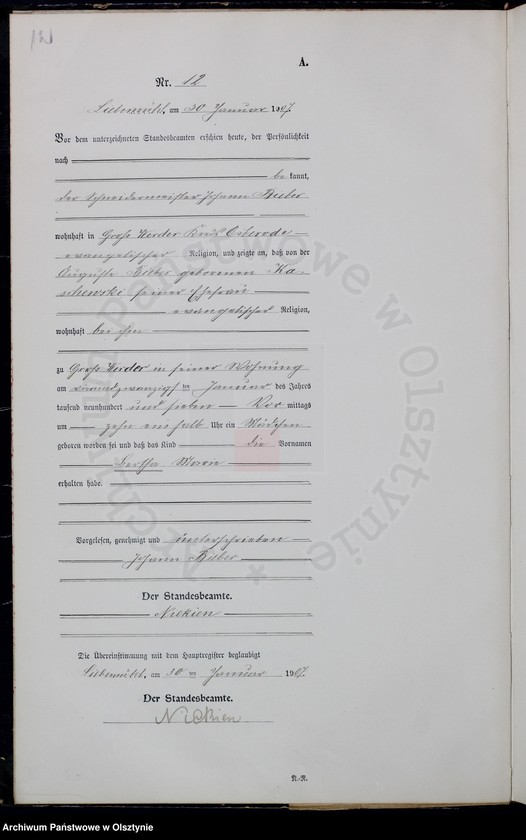 12
A.
Nr. 12
Liebemühl, am 30 Januar 1907.
Vor dem unterzeichneten Standesbeamten erschien heute, der Persönlichkeit
nach
be kannt,
der Schneidermeister Johann Bieber
wohnhaft in Groß Werder Kreis Osterode
evangelischer Religion, und zeigte an, daß von der
Auguste Bieber geborenen Ka-
schewski seiner Ehefrau
evangelischer Religion,
wohnhaft bei ihm
zu Groß Werder in seiner Wohnung
am des Januar des Jahres
tausend neunhundert und sieben Vor mittags
um zehn ein halb Uhr ein Mädchen
geboren worden sei und daß das Kind die Vornamen
Bertha Marie
erhalten habe.
Vorgelesen, genehmigt und unterschrieben
Johann Bieber
Der Standesbeamte.
Nickien
Die Übereinstimmung mit dem Hauptregister beglaubigt
Liebemühl, am 30 ten Januar 1907.
Der Standesbeamte.
Nickien
N.-N.
Archiwum Państwowe w Olsztynie
Archiwum Państwowe w Olsztynie *